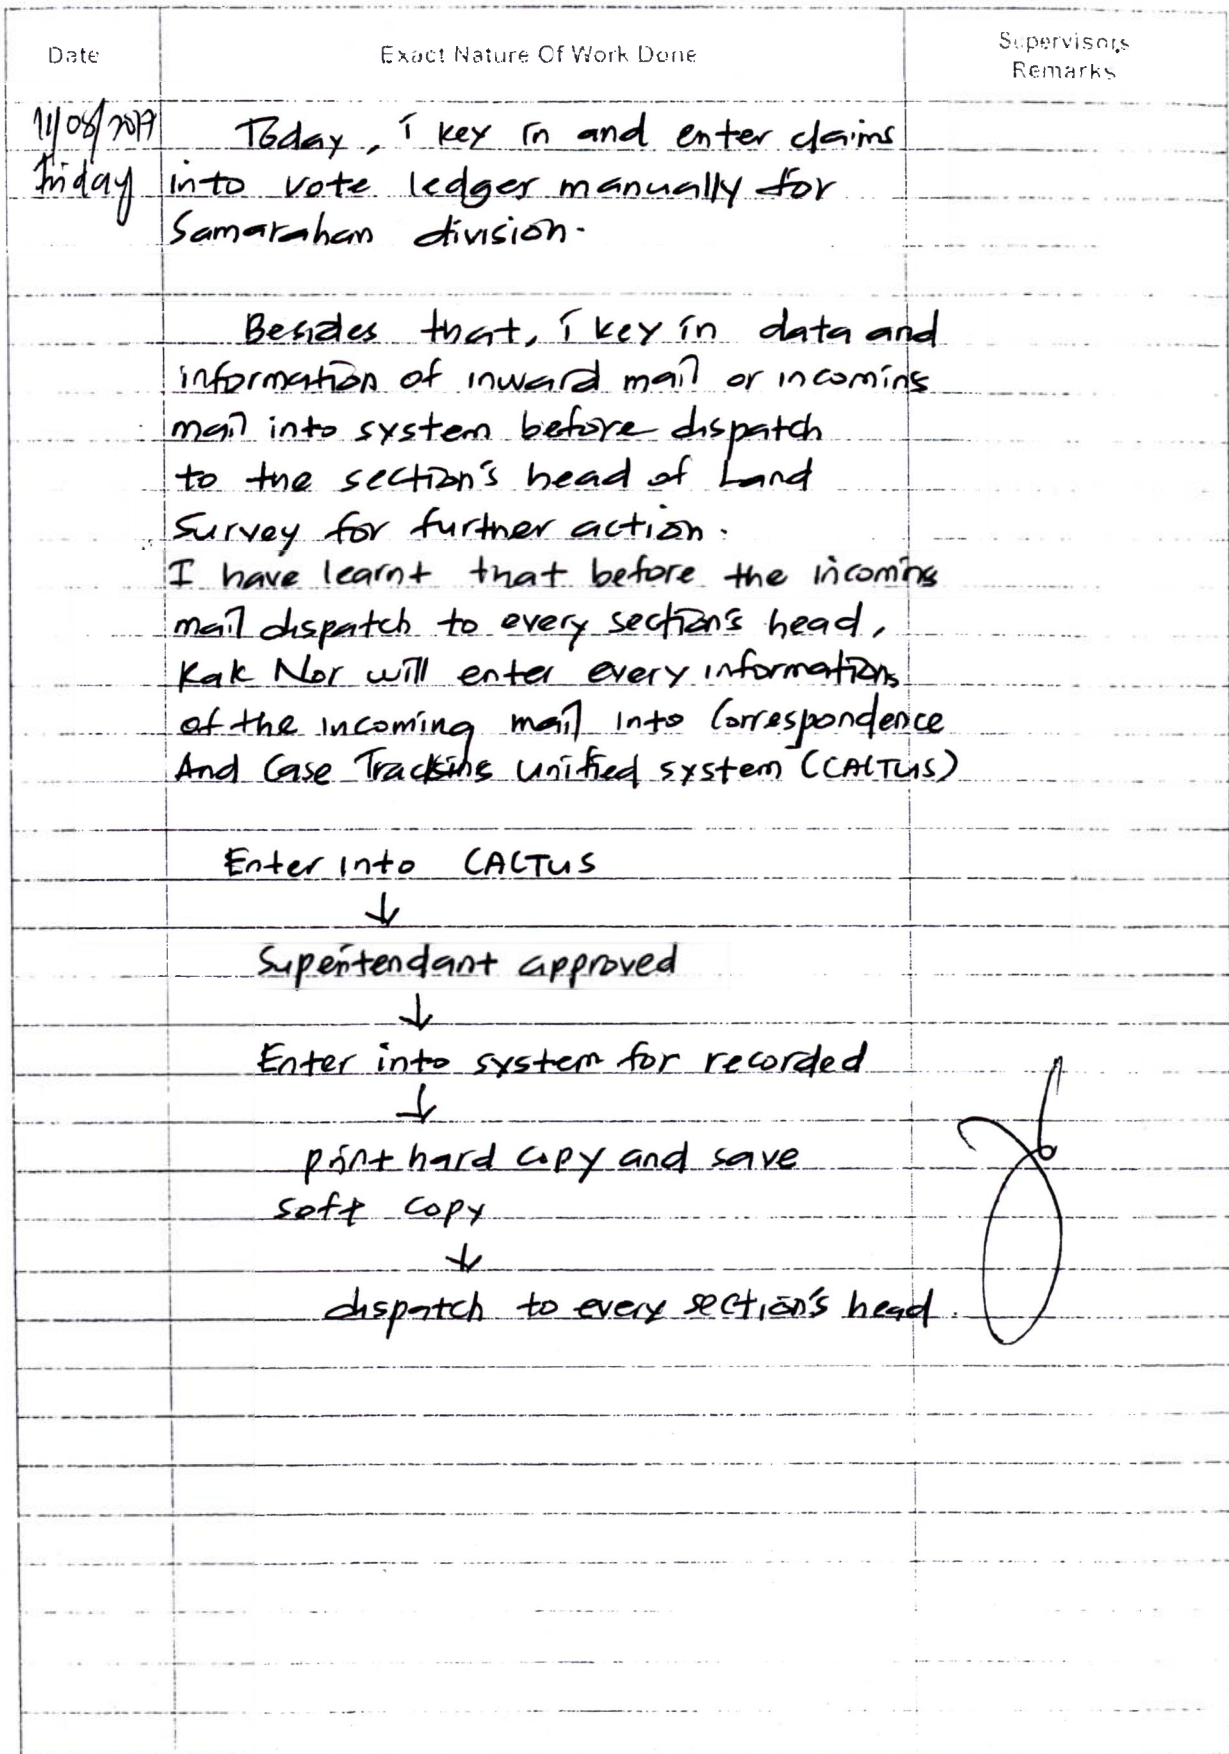 Date Exact Nature Of Work Done Supervisors
Remarks
11/08/2017 Today, i key in and enter claims
Friday into vote ledger manually for
Samarahan division.
Besides that, i key in data and
information of inward mail or incoming
mail into system before dispatch
to the section's head of Land
Survey for further action.
I have learnt that before the incoming
mail dispatch to every section's head,
Kak Nor will enter every informations
of the incoming mail into Correspondence
And Case Tracking Unified system (CACTUS)
Enter into CACTUS
↓
Superitendant approved
↓
Enter into system for recorded
↓
print hard copy and save
soft copy
↓
dispatch to every section's head.